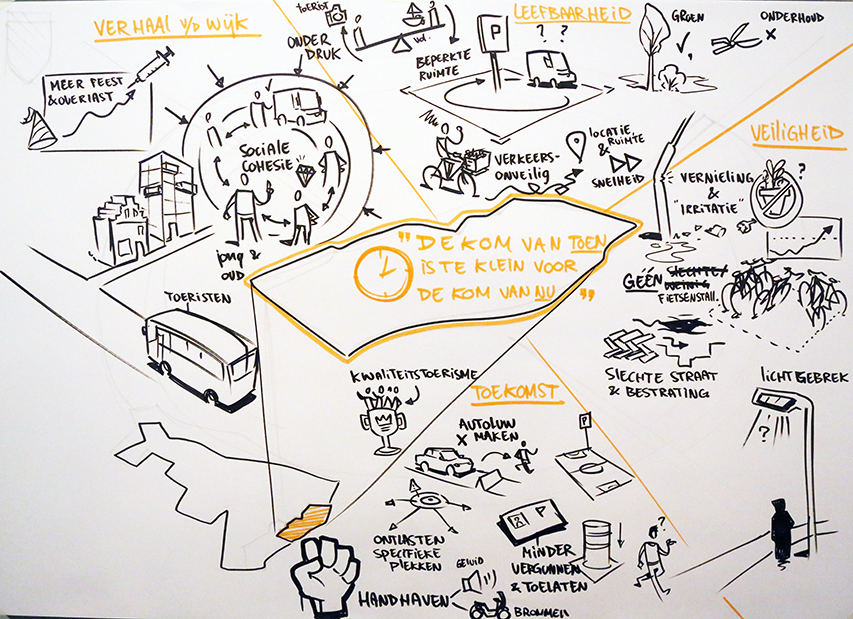 VERHAAL v/D WIJK
MEER FEEST
& OVERLAST
ONDER
DRUK
TOERIST
vol.
SOCIALE
COHESIE
jong &
OUD
TOERISTEN
LEEFBAARHEID
P
? ?
BEPERKTE
RUIMTE
GROEN
ONDERHOUD
X
VERKEERS-
ONVEILIG
LOCATIE
& RUIMTE
SNELHEID
VEILIGHEID
VERNIELING
&
"IRRITATIE"
?
GÉÉN SLECHTE/
WEINIG
FIETSENSTALL.
SLECHTE STRAAT
& BESTRATING
LICHTGEBREK
?
"DE KOM VAN TOEN
IS TE KLEIN VOOR
DE KOM VAN NU"
TOEKOMST
KWALITEITSTOERISME
AUTOLUW
X MAKEN
P
ONTLASTEN
SPECIFIEKE
PLEKKEN
P
MINDER
VERGUNNEN
& TOELATEN
?
HANDHAVEN
GELUID
BROMMEN